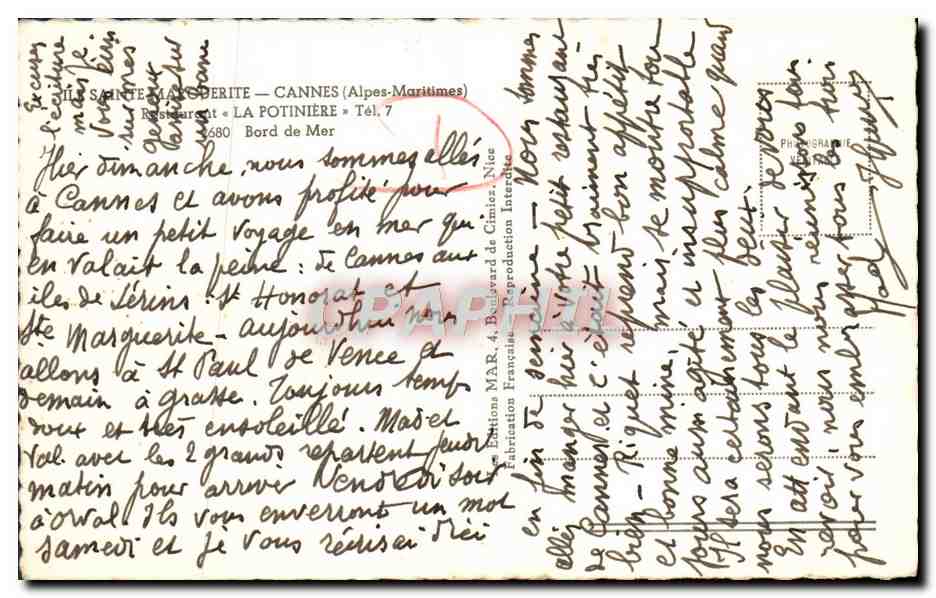 ILE SAINTE-MARGUERITE — CANNES (Alpes-Maritimes)
Restaurant « LA POTINIÈRE » Tél. 7
2680 Bord de Mer
Hier dimanche, nous sommes allés
à Cannes et avons profité pour
faire un petit voyage en mer qui
en valait la peine : de Cannes aux
iles de Lérins : St Honorat et
Ste Marguerite - aujourd'hui nous
allons à St Paul de Vence et
demain à Grasse. Toujours temps
doux et très ensoleillé. Mad et
Val avec les 2 grands repartent jeudi
matin pour arriver Vendredi soir
à Orval. Ils vous enverront un mot
samedi et je vous récrirai d'ici
en fin de semaine - Nous sommes
allés manger hier à votre petit restaurant
de Cannes et c'était vraiment très
bien - Riquet reprend bon appétit
et bonne mine, mais se montre tou-
jours aussi agité et insupportable
Il sera certainement plus calme quand
nous serons tous les deux.
En attendant le plaisir de vous
revoir, nous nous réunissons tous
pour vous embrasser tous les trois
Excusez
l'écriture
mais je
vous écris
sur mes
genoux
Les Editions MAR, 4, Boulevard de Cimiez, Nice
Fabrication Française - Reproduction Interdite
PHOTOGRAPHIE
VÉRITABLE
CPAPHIL